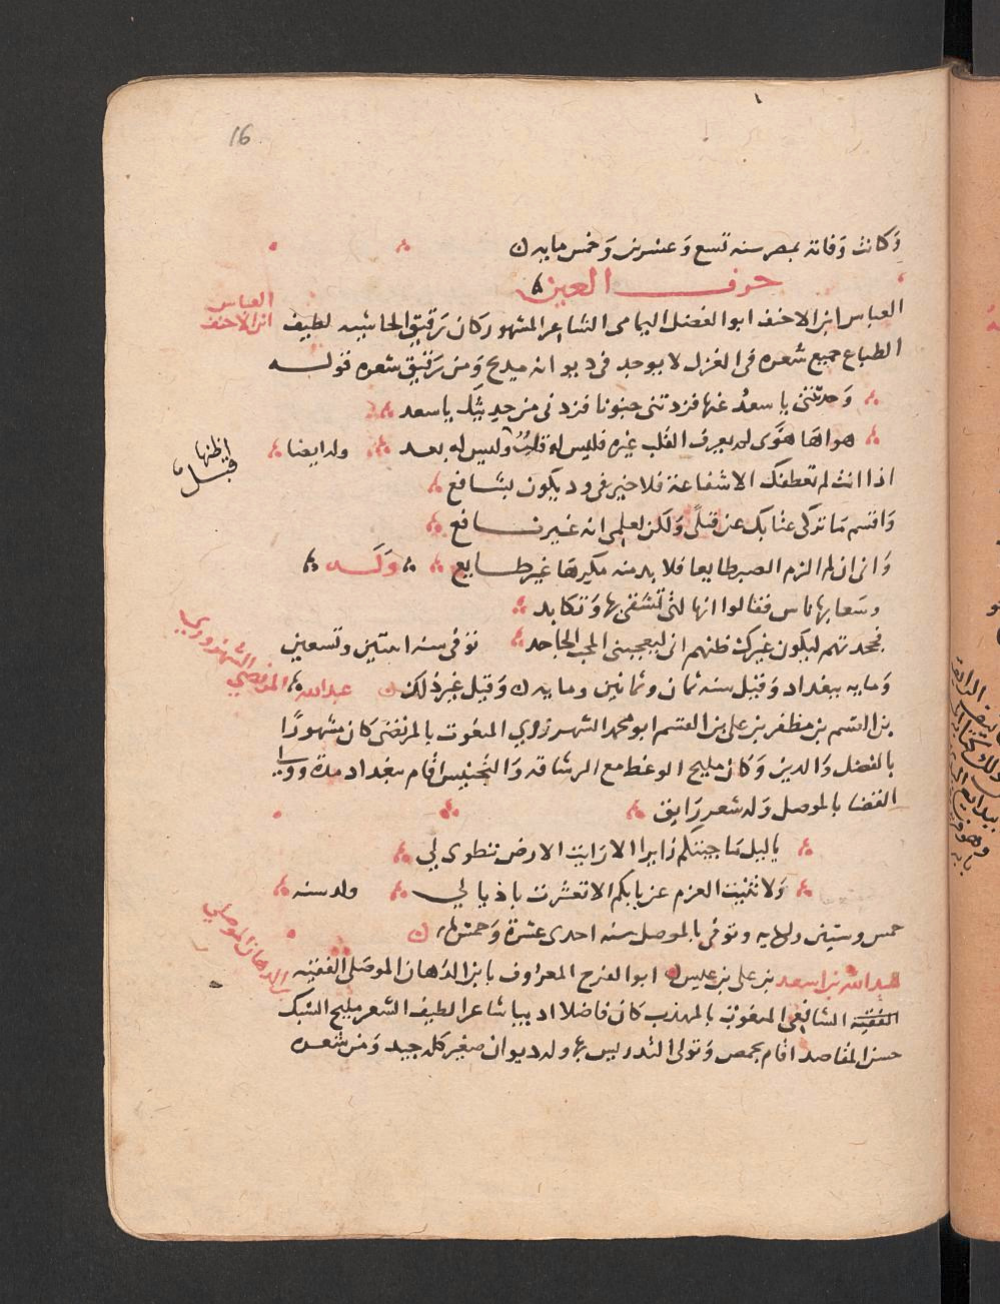 16
وَكانت وَفاته بمصر سنه تسع وَعشرين وَخمس مايه ن
حرف العين
العباس ابن الاحنف
العباس ابن الاحنف ابو الفضل اليمامى الشاعر المشهور كان رَقيق الحاشيه لطيف
الطباع جميع شعره فى الغزل لا يوجد فى ديوانه مديح وَمن رَقيق شعره قوله
وَحدثتنى يا سعدُ عنها فزدتنى جنونا فزدنى من حديثك يا سعد
هواهَا هَوًى لم يعرف القلب غيره فليس له قبلٌ وليس له بعد وله ايضا
اظنها قبل
اذا انت لم تعطفك الا شفاعة فلا خير فى ود يكون بشافع
وَاقسم مَا تركى عتابك عن قِلًى وَلكن لعلمى انه غير نافع
وَانى ان لم الزم الصبر طايعا فلا بد منه مكرها غير طايع وَلَه
وسَعا بها ناس فقالوا انها لهى التى تشقى بها وَتكابد
فجحدتهم ليكون غيرك ظنهم انى ليعجبنى المحب الجاحد توفى سنه اثنتين وتسعين
وَمايه ببغداد وَقيل سنه ثمان وثمانين ومايه ن وَقيل غيرُ ذلك ن عبدالله
المرتضى الشهرزوري
بن القسم بن مظفر بن على بن القسم ابو محمد الشهرزوري المنعوت بالمرتضى كان مشهورًا
بالفضل وَالدين وَكان مليح الوعظ مع الرشاقه وَالتجنيس اقام ببغداد مدة وولى
القضا بالموصل وَله شعر رَايق
يا ليل مَا جيتكم زايرا الا رَايت الارض تنطوى لي
وَلا ثنيت العزم عن بابكم الا تعثرت باذيالي ولد سنه
خمس وستين واربع مايه وتوفى بالموصل سنه احدى عشرة وَخمس مايه ن
ابن الدهان الموصلي
عبدالله بن اسعد بن على بن عيسى ابو الفرج المعروف بابن الدهان الموصَلى الفقيه
الفقيه الشافعى المنعوت بالمهذب كان فاضلا اديبا شاعرا لطيف الشعر مليح السبك
حسن المقاصد اقام بحمص وَتولى التدريس بها وله ديوان صغير كله جيد وَمن شعره